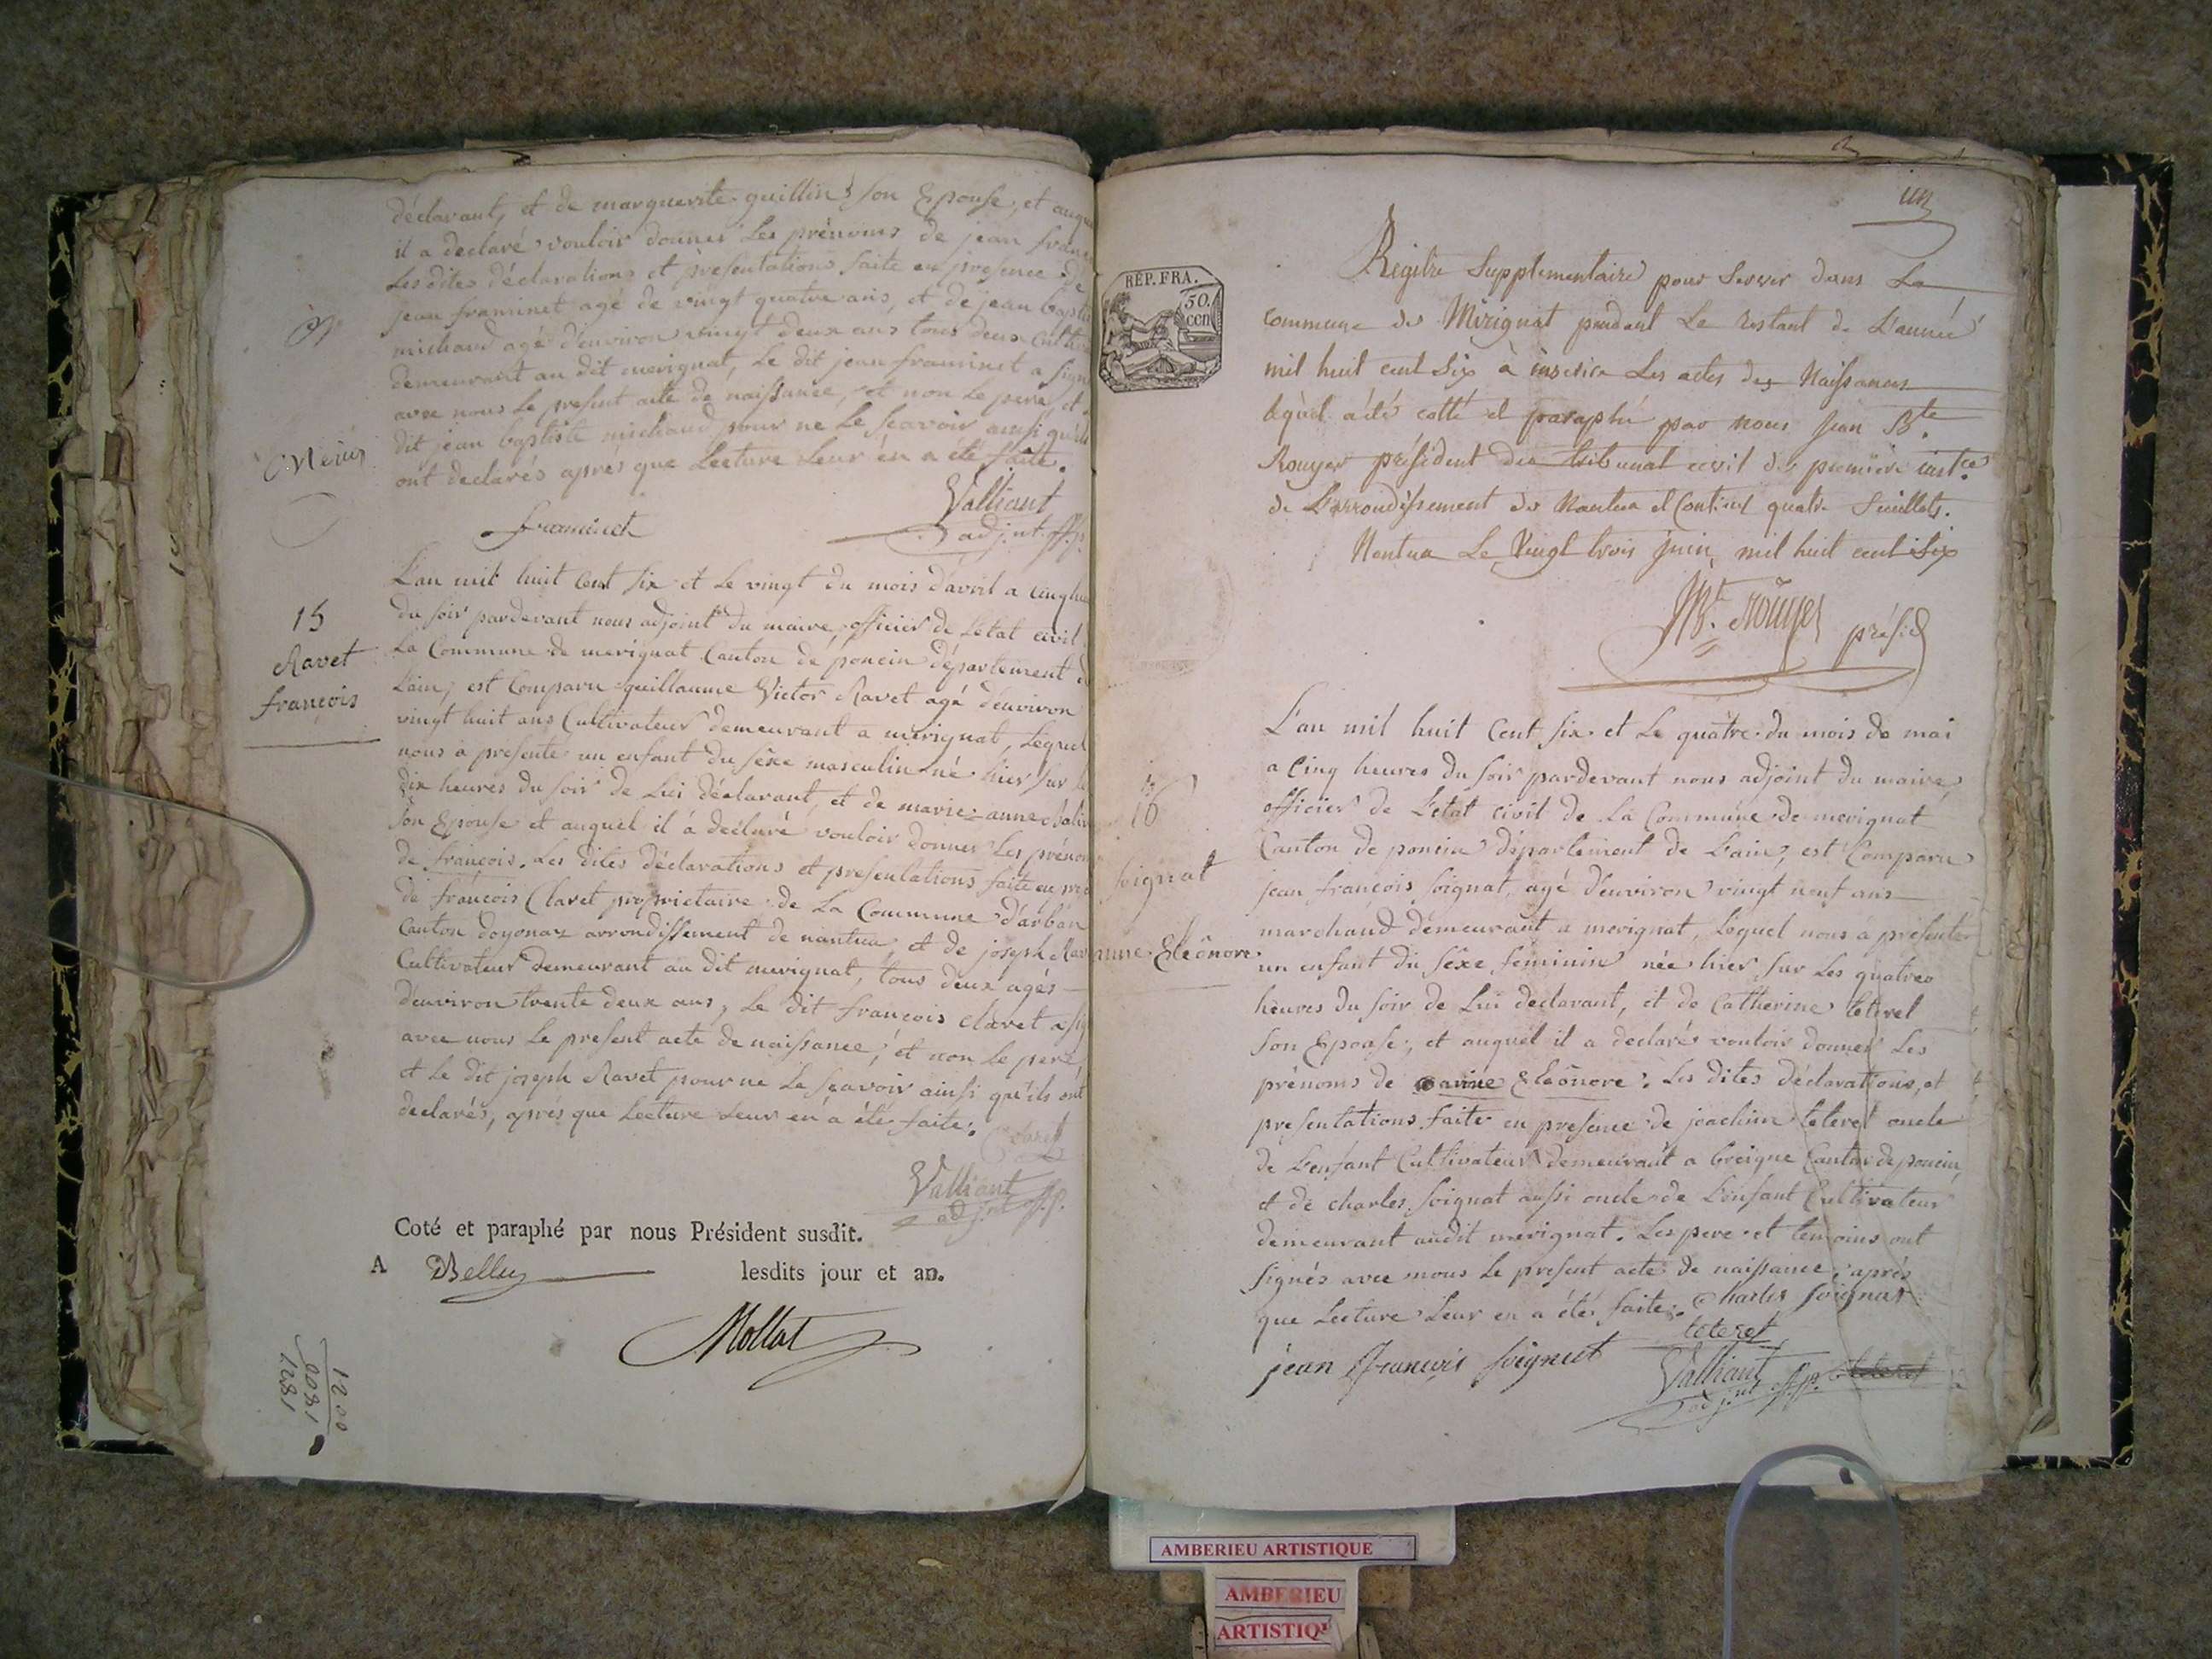 déclarant, et de marguerite guillin son Epouse, et auqu
il a declaré vouloir donner les prénoms de jean fran
Les dites déclarations et presentations faite en presence de
jean framinet agé de vingt quatre ans, et de jean bapti
michaud agé d'environ vingt deux ans tous deux Cultiv
demeurant au dit merignat, Le dit jean framinet a sign
avec nous Le present acte de naissance, et non Le pere, et
dit jean baptiste michaud pour ne Le scavoir ainsi qu'ils
ont declarés aprés que Lecture Leur én a été faite.
Valliant
framinet
adj.nt ff.p.
15
Ravet
françois
L'an mil huit Cent six et Le vingt du mois d'avril a Cinq heu
du soir pardevant nous adjoint du maire, officier de L'état civil
La Commune de merignat Canton de poncin département d
L'ain, est Comparu guillaume Victor Ravet agé d'environ
vingt huit ans Cultivateur demeurant a merignat, Lequel
nous a presenté un enfant du sèxe masculin né hier sur l
dix heures du soir de Lui déclarant, et de marie anne
son Epouse et auquel il a declaré vouloir donner Les préno
de françois. Les dites déclarations et presentations faite en pre
de françois Claret proprietaire de La Commune d'arban
Canton doyonaz arrondissement de nantua et de joseph Rav
Cultivateur demeurant au dit merignat, tous deux agés
d'environ trente deux ans, Le dit françois claret a sig
avec nous Le present acte de naissance, et non Le peré
et Le dit joseph Ravet pour ne Le scavoir ainsi qu'ils ont
declarés, aprés que Lecture Leur en a été faite.
Claret
Valliant
adj.nt ff.p.
Coté et paraphé par nous Président susdit.
A Belley lesdits jour et an.
Mollat
1200
1800
1281
un
RÉP. FRA.
50.
cen
Régitre Supplementaire pour Servir dans La
commune de Mérignat pendant Le restant de L'année
mil huit cent Six à inscrire Les actes des Naissances
lequel a été cotté et paraphé par nous Jean Bte
Rouyer président du tribunal civil de première instce
de L'arrondissement de Nantua et Contient quatre feuillets.
Nantua Le Vingt trois juin mil huit cent Six
JBte Rouyer présid
16
soignat
anne Eleônore
L'an mil huit Cent six et Le quatre du mois de mai
a Cinq heures du soir pardevant nous adjoint du maire,
officier de L'etat civil de La Commune de merignat
Canton de poncin département de L'ain, est Comparu
jean françois soignat, agé d'environ vingt neuf ans
marchand demeurant a merignat, Lequel nous a presenté
un enfant du sèxe feminin née hier sur Les quatre
heures du soir de Lui declarant, et de Catherine teteret
son Epouse, et auquel il a declarés vouloir donner Les
prénoms de Eleônore. Les dites déclarations, et
presentations faite en presence de joachim teteret oncle
de L'enfant Cultivateur demeurant a Canton de poncin,
et de charles soignat aussi oncle de L'enfant Cultivateur
demeurant audit merignat. Les pere et temoins ont
signés avec nous Le present acte de naissance, aprés
que Lecture Leur en a été faite.
Charles soignat
teteret
jean françois soignat
Valliant
adj.nt ff.p.
AMBERIEU ARTISTIQUE
AMBERIEU
ARTISTIQ